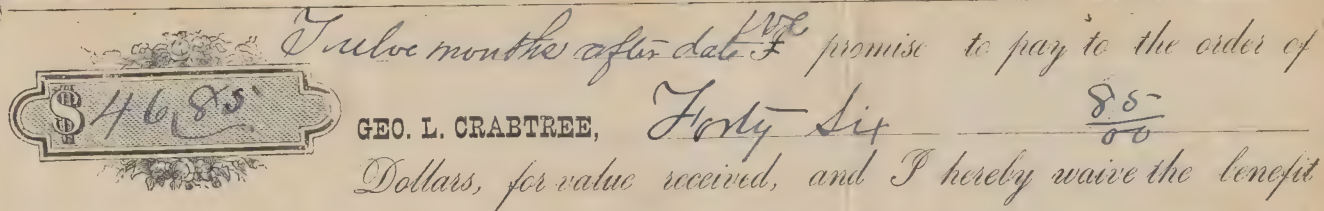 Twelve months after date we I promise to pay to the order of
$ 46.85 GEO. L. CRABTREE, Forty Six 85/00
Dollars, for value received, and I hereby waive the benefit